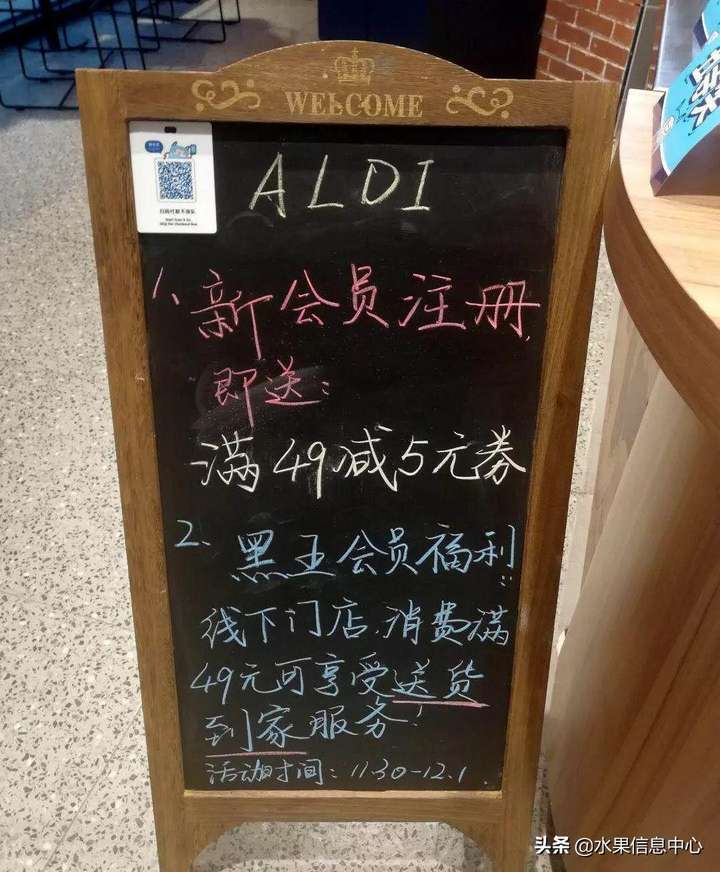 WELCOME
ALDI
1、新会员注册,
即送:
满49减5元券
2、黑王会员福利:
线下门店.消费满
49元可享受送货
到家服务!
活动时间:11.30-12.1.
头条 @水果信息中心